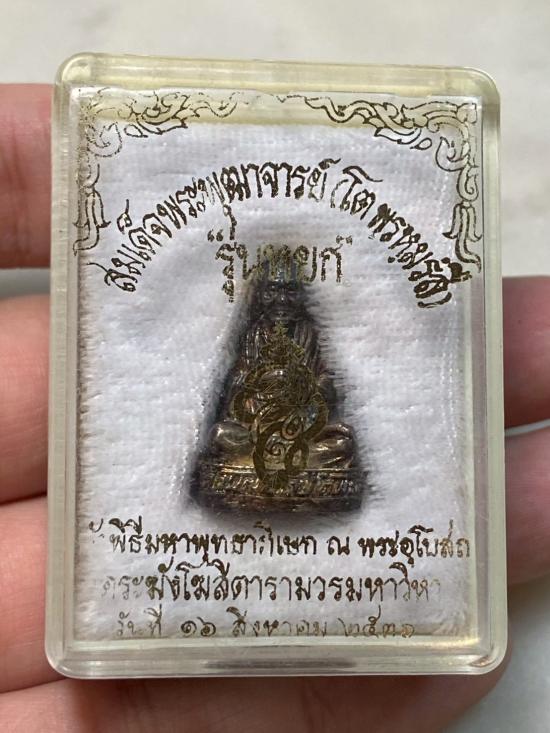 สมเด็จพระพุฒาจารย์ (โต พรหมรังสี)
รุ่นหยก
พิธีมหาพุทธาภิเษก ณ พระอุโบสถ
ระฆังโฆสิตารามวรมหาวิหา
วันที่ ๑๖ สิงหาคม ๒๕๓๑